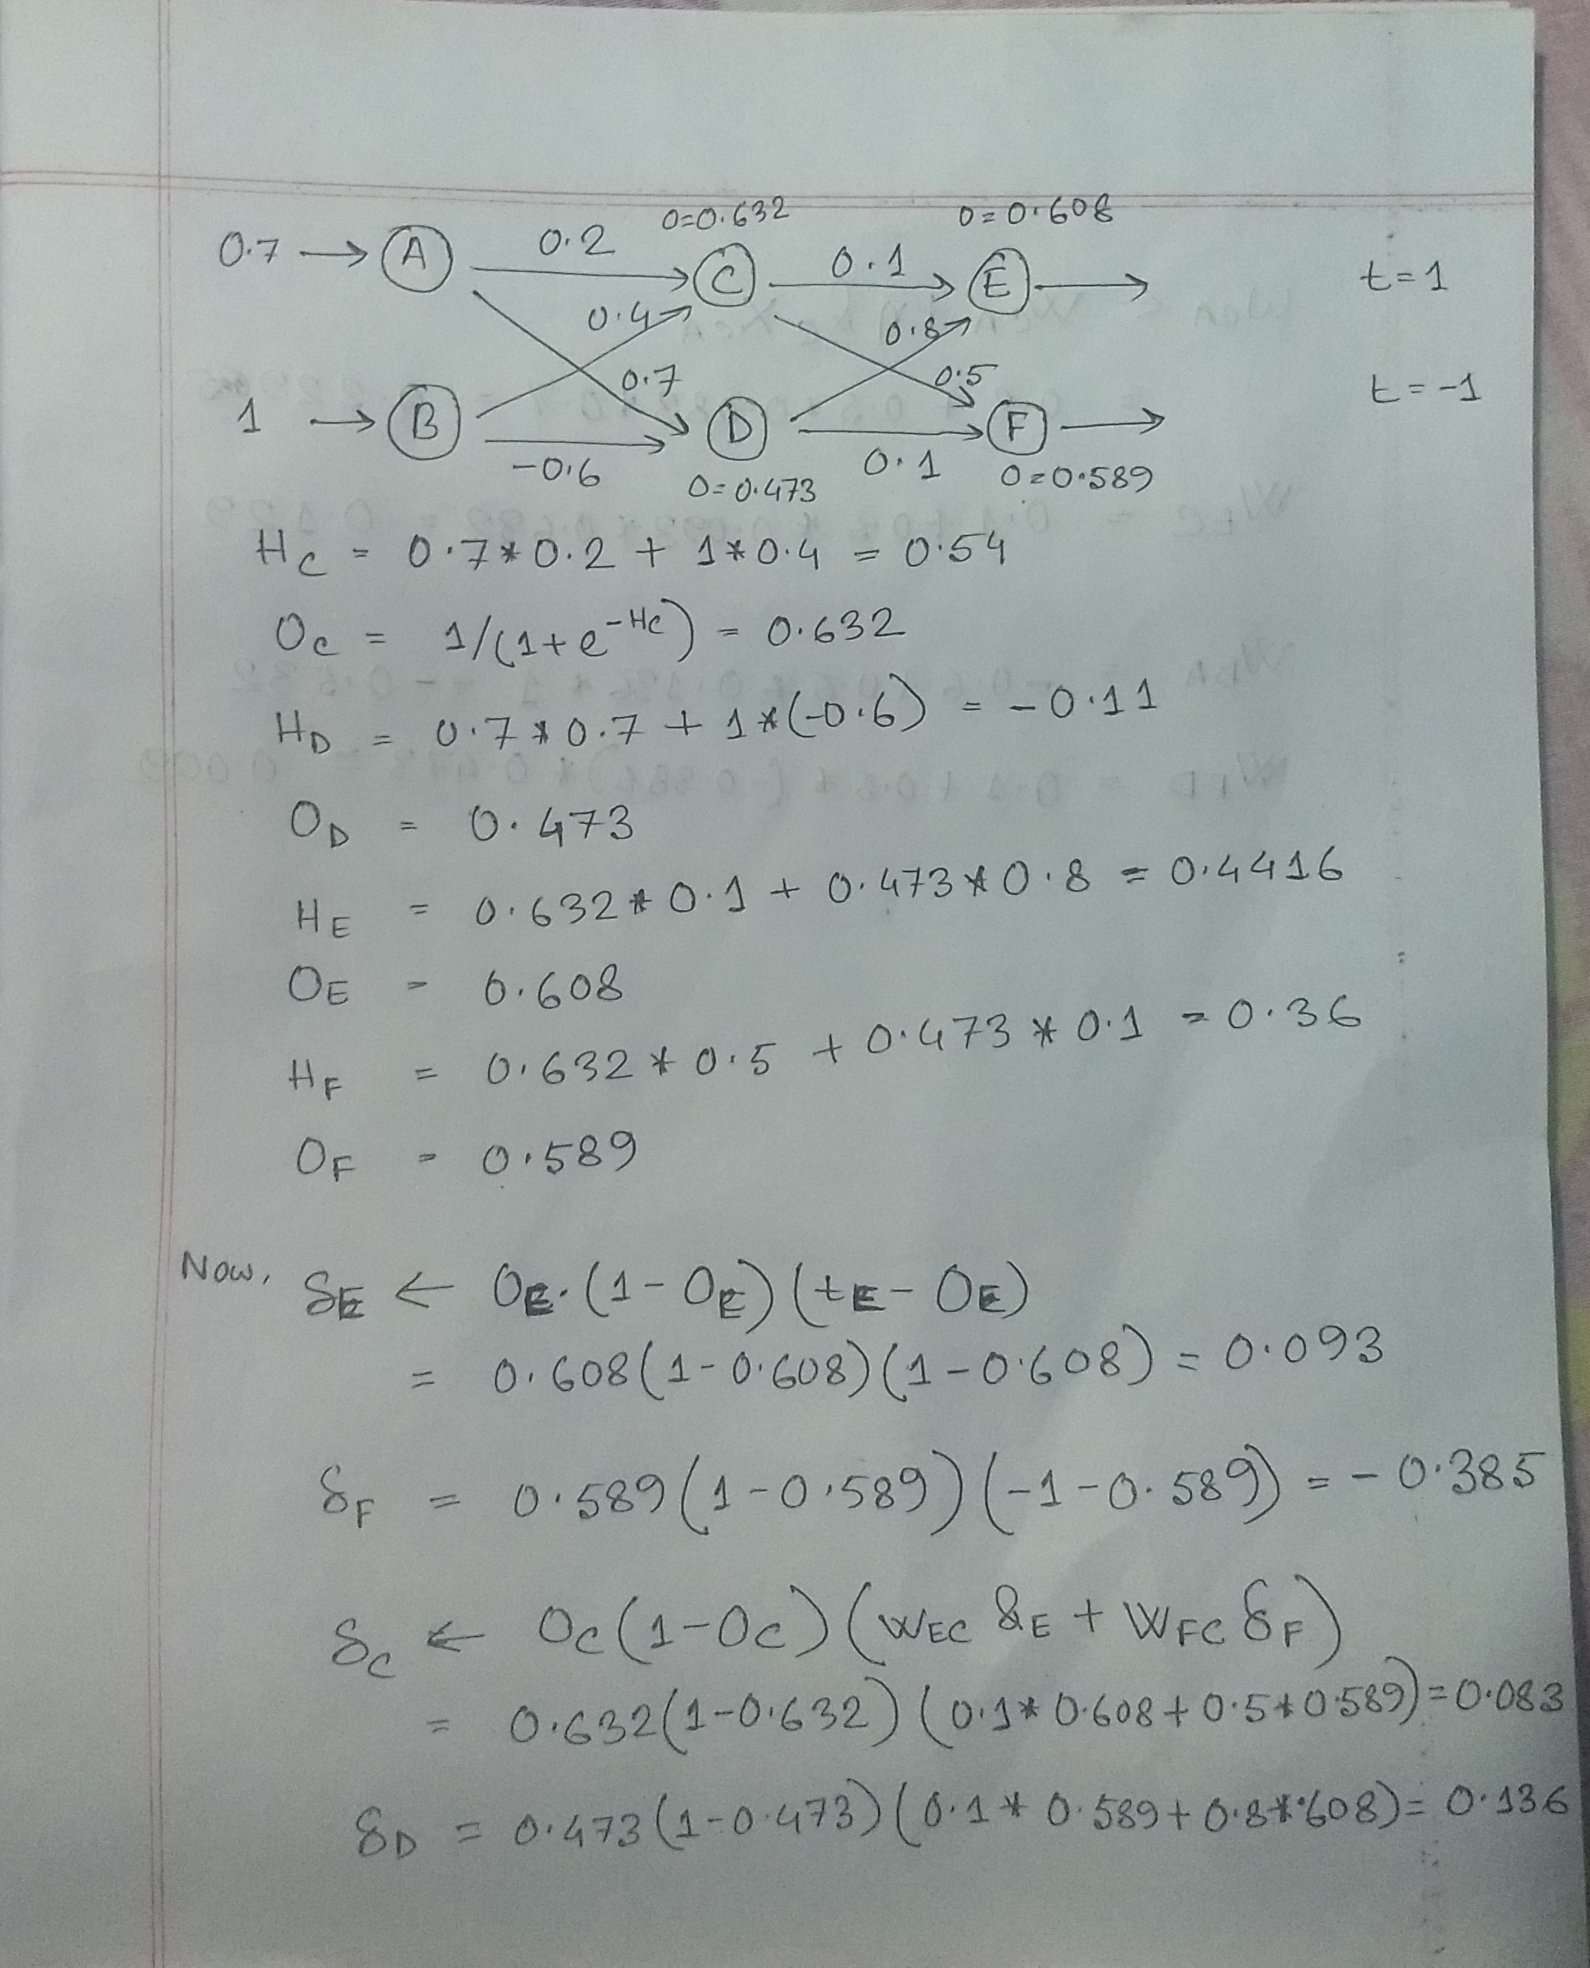 0=0.632 0=0.608
0.7 → A 0.2 C 0.1 E → t=1
0.4 0.8
0.7 0.5
1 → B D F → t=-1
-0.6 0=0.473 0.1 0=0.589
H_C = 0.7*0.2 + 1*0.4 = 0.54
O_C = 1/(1+e^-Hc) = 0.632
H_D = 0.7*0.7 + 1*(-0.6) = -0.11
O_D = 0.473
H_E = 0.632*0.1 + 0.473*0.8 = 0.4416
O_E = 0.608
H_F = 0.632*0.5 + 0.473*0.1 = 0.36
O_F = 0.589
Now, δ_E ← O_E.(1-O_E)(t_E-O_E)
= 0.608(1-0.608)(1-0.608) = 0.093
δ_F = 0.589(1-0.589)(-1-0.589) = -0.385
δ_C ← O_C(1-O_C)(W_EC δ_E + W_FC δ_F)
= 0.632(1-0.632)(0.1*0.608+0.5*0.589)=0.083
δ_D = 0.473(1-0.473)(0.1*0.589+0.8*.608)=0.136